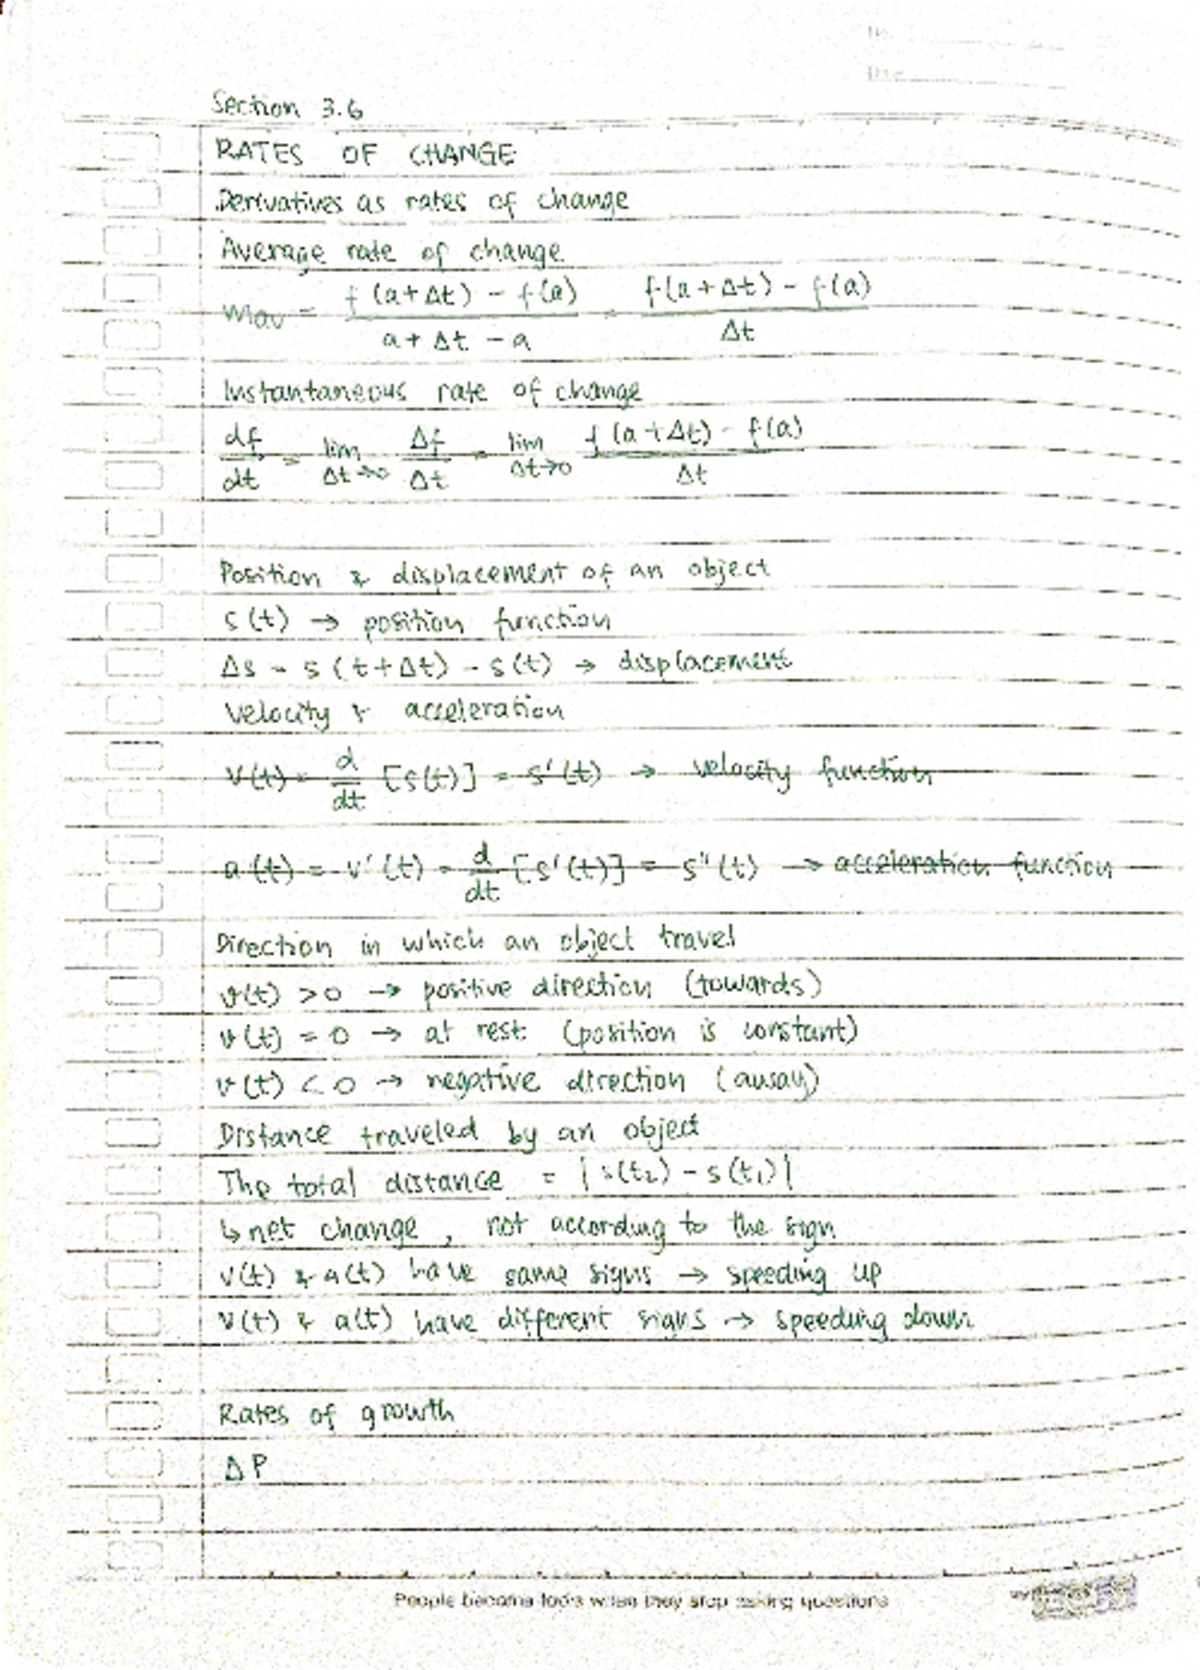 No.
Date
Section 3.6
RATES OF CHANGE
Derivatives as rates of change
Average rate of change
mav = f(a+Δt) - f(a) / a+Δt - a = f(a+Δt) - f(a) / Δt
Instantaneous rate of change
df/dt = lim Δt→0 Δf/Δt = lim Δt→0 f(a+Δt) - f(a) / Δt
Position & displacement of an object
s(t) → position function
Δs = s(t+Δt) - s(t) → displacement
Velocity & acceleration
v(t) = d/dt [s(t)] = s'(t) → velocity function
a(t) = v'(t) = d/dt [s'(t)] = s"(t) → acceleration function
Direction in which an object travel
v(t) > 0 → positive direction (towards)
v(t) = 0 → at rest (position is constant)
v(t) < 0 → negative direction (away)
Distance traveled by an object
The total distance = |s(t₂) - s(t₁)|
↳ net change, not according to the sign
v(t) & a(t) have same signs → speeding up
v(t) & a(t) have different signs → speeding down
Rates of growth
ΔP
People become fools when they stop asking questions